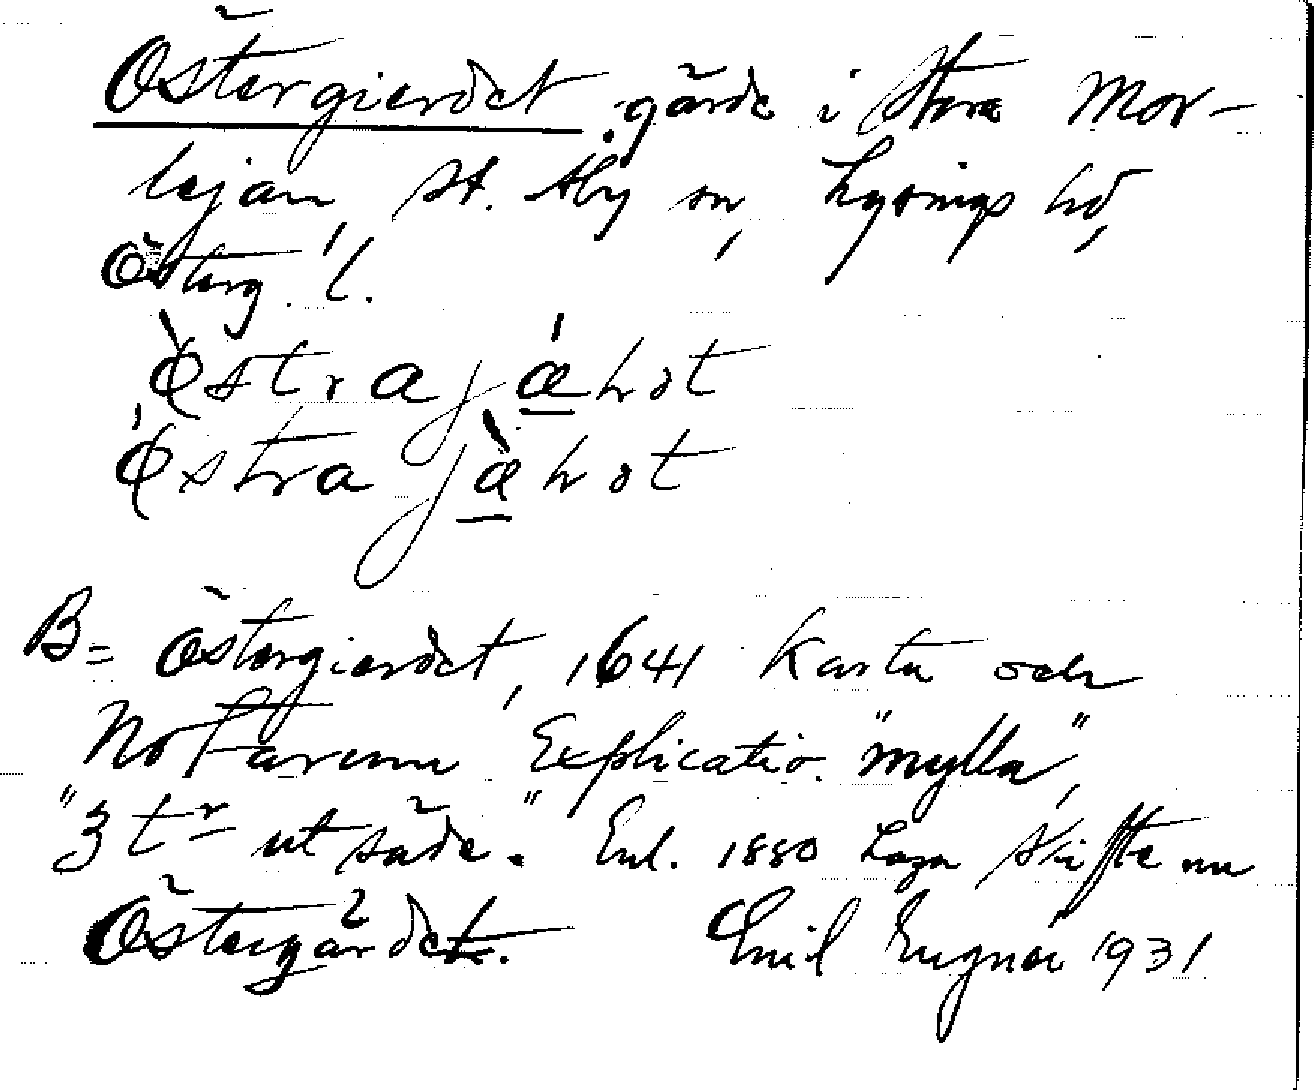 Östergierdet, gärde i Stora Mor-
lejan, St. Åby sn, Lysings hd,
Österg. l.
B= Östergierdet, 1641 Karta och
Notarum Explicatio. "mylla",
"3 tr utsäde." Enl. 1880 Laga skifte nu
Östergärdet. Emil 1931